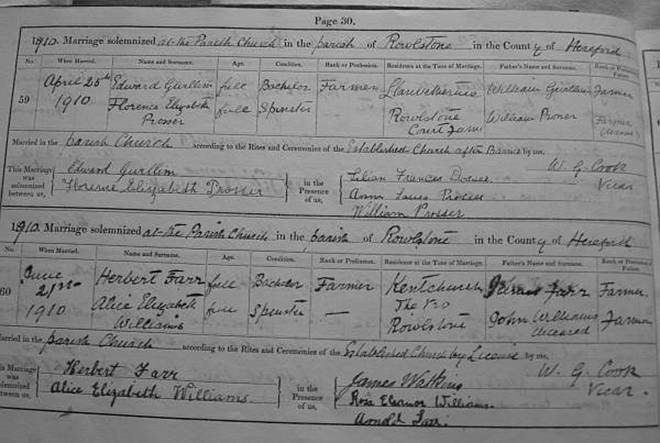 Page 30.
1910. Marriage solemnized at the Parish Church in the parish of Rowlstone in the County of Hereford
No. When Married. Name and Surname. Age. Condition. Rank or Profession. Residence at the Time of Marriage. Father's Name and Surname. Rank or Profession of Father.
59 April 25th 1910 Edward Gwillim full Bachelor Farmer William Gwillim Farmer
Florence Elizabeth Prosser full Spinster Rowlstone Court Farm William Prosser Farmer
Married in the parish Church according to the Rites and Ceremonies of the Established Church after Banns by me,
W. G. Cook
Vicar
This Marriage was solemnized between us,
Edward Gwillim
Florence Elizabeth Prosser
in the Presence of us,
Lilian Frances
Prosser
William Prosser
1910. Marriage solemnized at the Parish Church in the parish of Rowlstone in the County of Hereford
No. When Married. Name and Surname. Age. Condition. Rank or Profession. Residence at the Time of Marriage. Father's Name and Surname. Rank or Profession of Father.
60 June 21st 1910 Herbert Farr full Bachelor Farmer Kentchurch Farr Farmer
Alice Elizabeth Williams full Spinster — The Rowlstone John Williams deceased Farmer
Married in the parish Church according to the Rites and Ceremonies of the Established Church by License by me,
W. G. Cook
Vicar.
This Marriage was solemnized between us,
Herbert Farr
Alice Elizabeth Williams.
in the Presence of us,
James Watkins
Rose Eleanor Williams.
Arnold Farr.